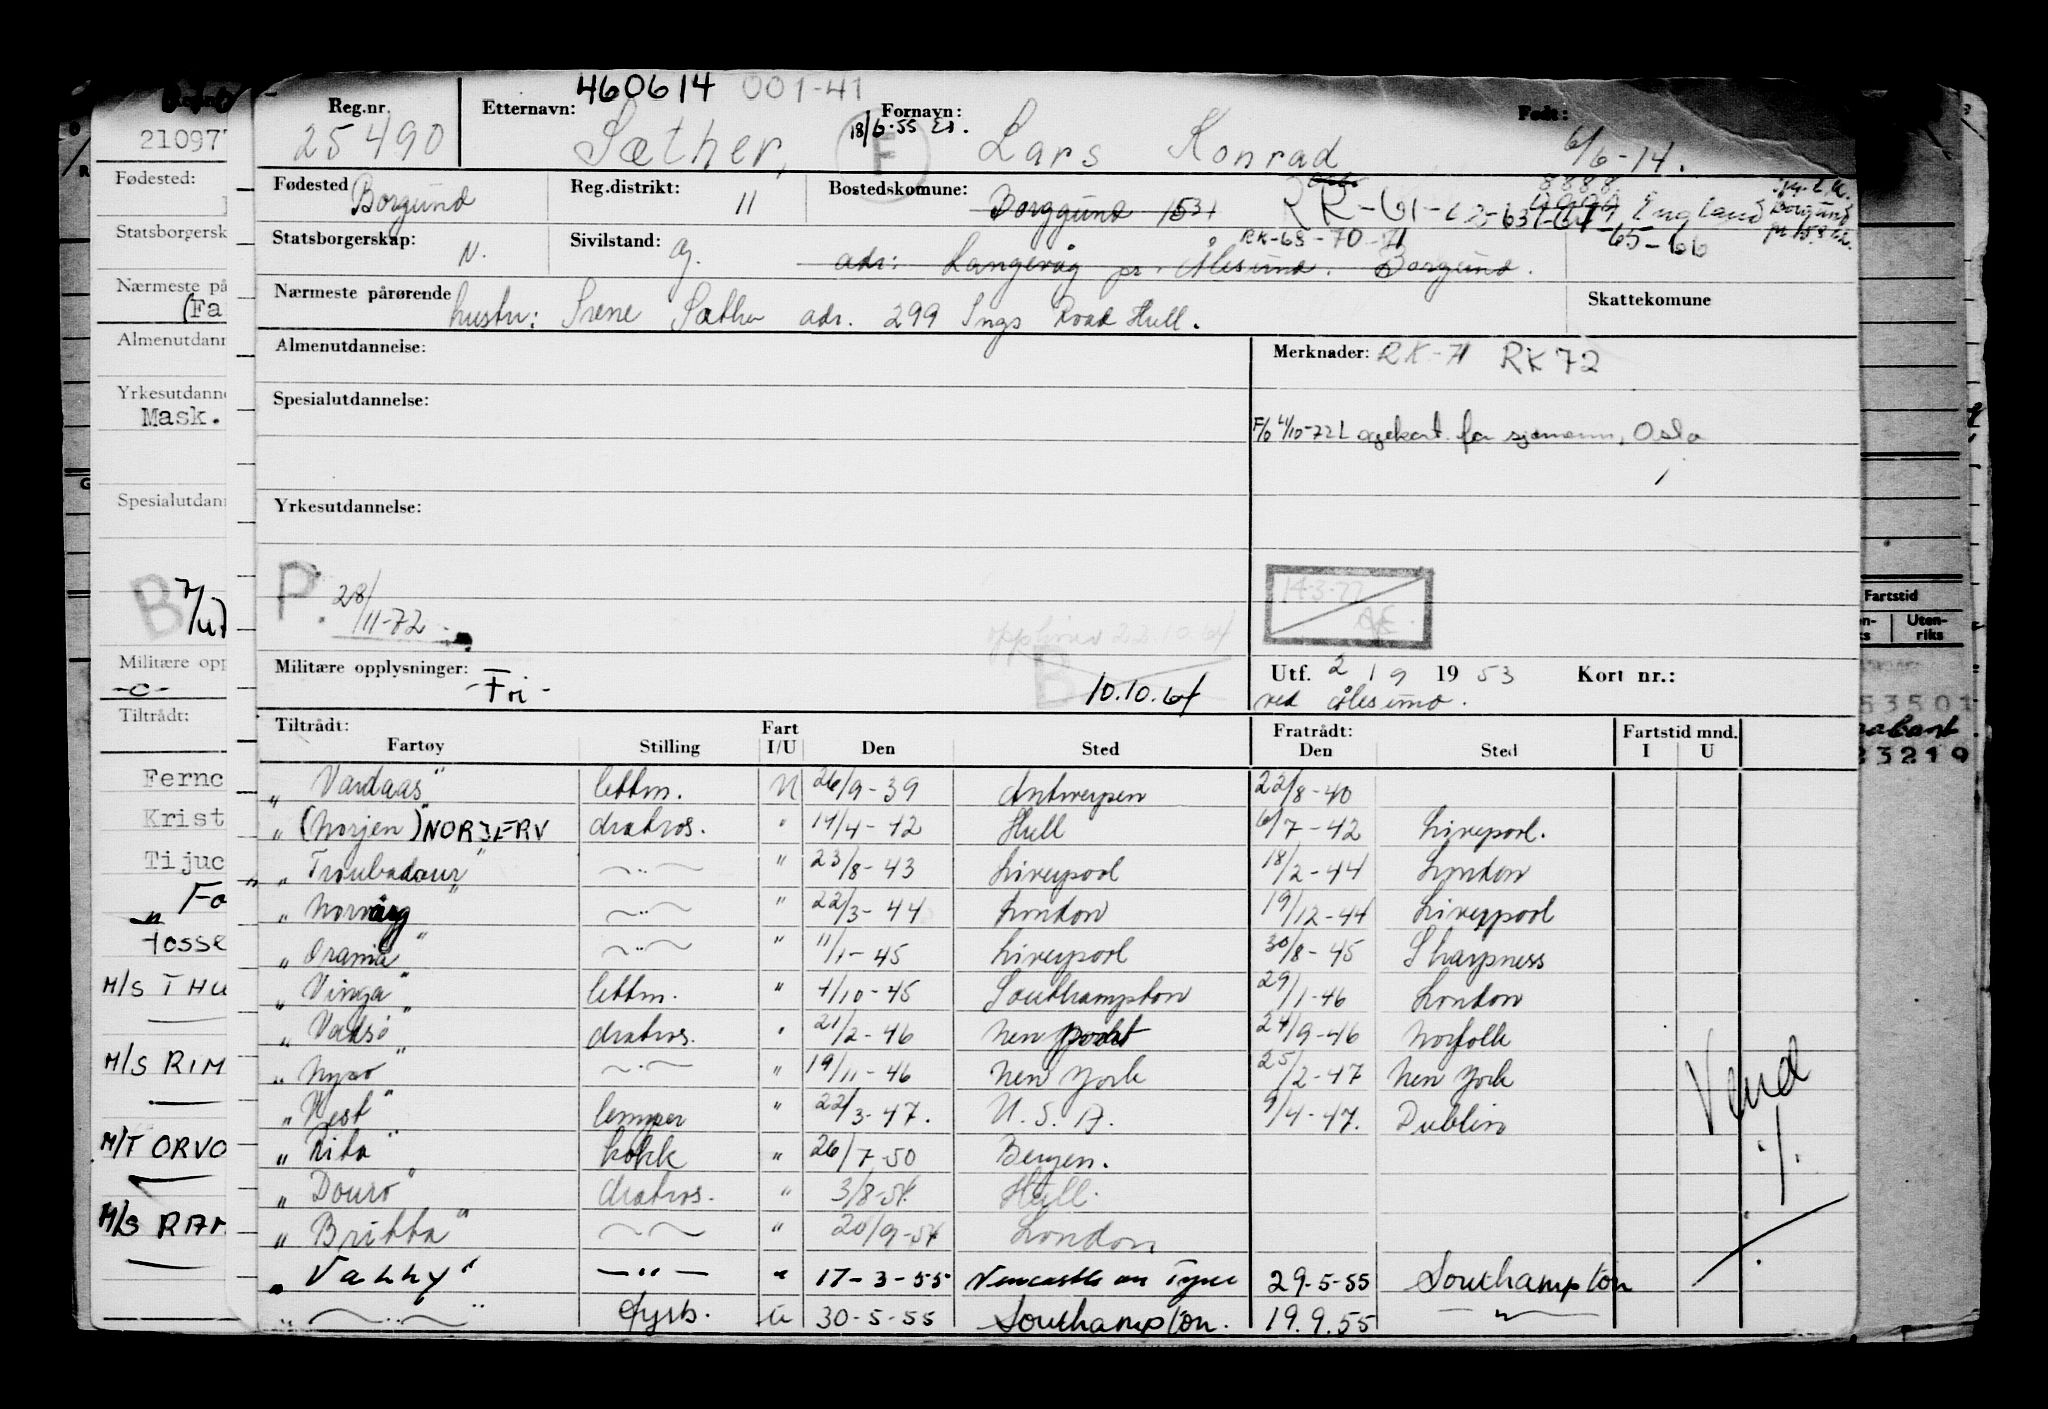 460614 001-41
Reg.nr. Etternavn: Fornavn: Født:
25490 Sæther, 18/6-55 E Lars Konrad 6/6-14.
Fødested Borgund Reg.distrikt: 11 Bostedskomune: Borggund 1531 England
Statsborgerskap: N. Sivilstand: g. RK-68-70-71 65-66
adr: Langevåg pr. Ålesund. Borgund.
Nærmeste pårørende hustru: Irene Sæther adr. 299 Ings Road Hull. Skattekomune
Almenutdannelse: Merknader: RK-71 RK 72
Spesialutdannelse:
4/10-72 Legekort for sjømenn, Oslo
Yrkesutdannelse:
P. 28/11-72 14-3-77
opphevd 22.10.64
Militære opplysninger: -Fri- B 10.10.64 Utf. 2 / 9 1953 Kort nr.:
ved Ålesund.
Tiltrådt: Fart Fratrådt: Fartstid mnd.
Fartøy Stilling I/U Den Sted Den Sted I U
"Vardaas" lettm. U 26/9-39 Antwerpen 22/8-40
"(Norjen)" NORJERV matros. " 14/4-42 Hull 6/7-42 Liverpool.
"Troubadour" -"- " 23/8-43 Liverpool 18/2-44 London
"Norvarg" -"- " 22/3-44 London 19/12-44 Liverpool
"Orania" -"- " 11/1-45 Liverpool 30/8-45 Sharpness
"Vinga" lettm. " 4/10-45 Southampton 29/1-46 London
"Vadsø" matros. " 21/2-46 New port 24/9-46 Norfolk
"Nyso" -"- " 19/11-46 New York 25/2-47 New York
"Vest" lemper " 22/3-47. U.S.A. 9/4-47. Dublin
"Rita" kokk " 26/7-50 Bergen.
"Douro" matros. " 3/8-54 Hull.
"Britta" -"- " 20/9-54 London
"Vanny" -"- " 17-3-55 Newcastle on Tyne 29-5-55 Southampton
-"- fyrb. U 30-5-55 Southampton. 19.9.55 -"-
Vend ./.
210977
Fødested:
Statsborgersk
Nærmeste på
(Fa
Almenutdann
Yrkesutdanne
Mask.
Spesialutdann
B
Militære opp
-c-
Tiltrådt:
Fernc
Krist
Tijuc
Fo
fosse
M/S THU
M/S RIM
M/T ORVO
M/S RAN
Fartstid
Uten-
riks
53501
23219